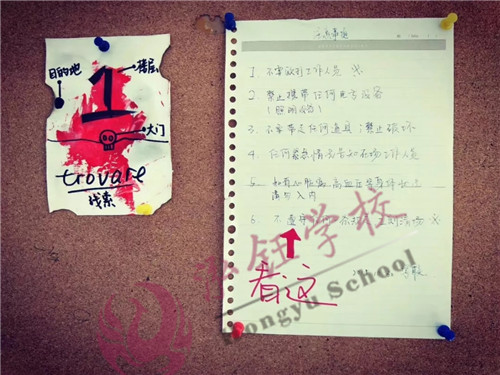 目的地
楼层
1
大门
trovare
线索
注意事项
1. 不要敌对工作人员
2. 禁止携带任何电子设备
(照明设备)
3. 不要带走任何道具;禁止破坏
4. 任何紧急情况告知在场工作人员
5. 如有心脏病,高血压等
请勿入内
6. 不遵守
看这
学校
Hongyu School